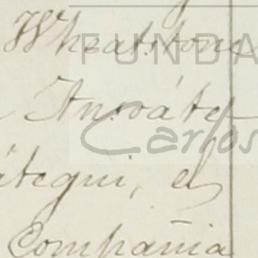 Wheatstone
FUNDA
Carlos
átegui, el
Compañia